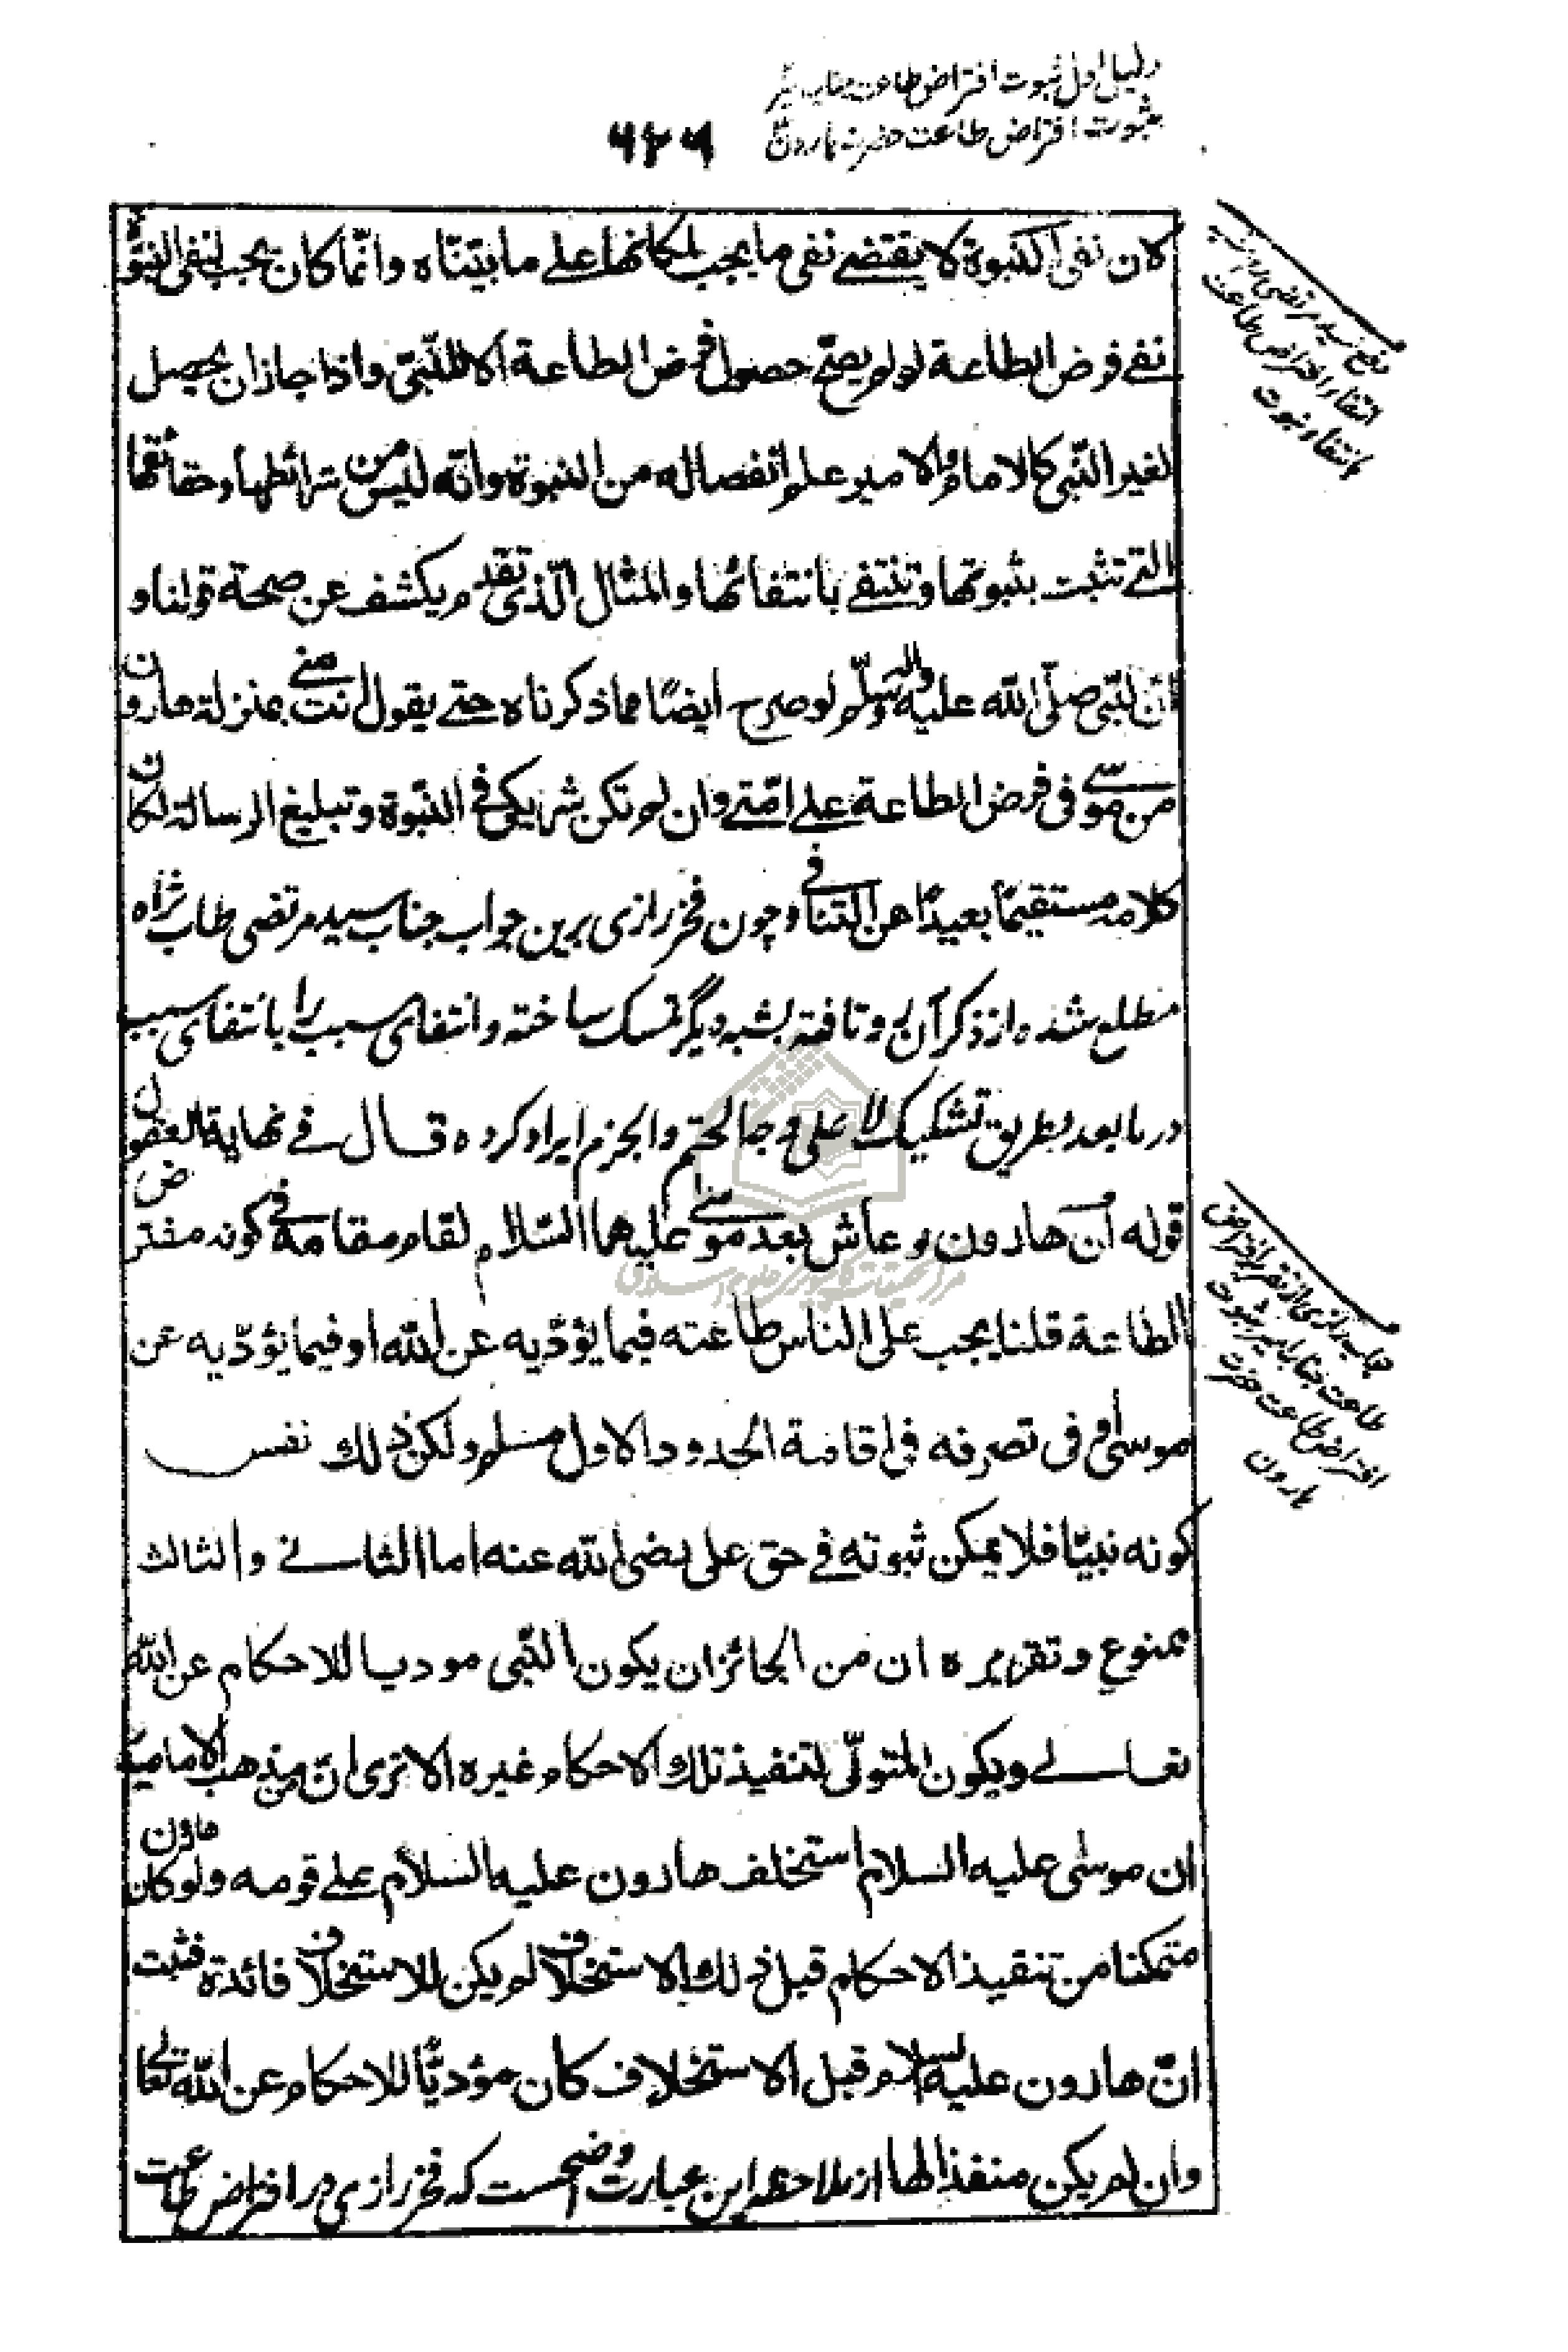 دلیل اول ثبوت افتراض طاعت جناب امیر
بثبوت افتراض طاعت حضرت هارون
۶۴۶
لان نفی النبوة لا یقتضے نفی ما یجب لمکانها علے ما بیّنّاه وانّما کان یجب لنفی النبوّة
نفے فرض الطاعة لو لم یصحّ حصول فرض الطاعة الا للنّبیّ واذا جاز ان یحصل
لغیر النّبی کالامام والامیر علم انفصاله من النبوة وانّه لیس من شرائطها وحقائقها
التے تثبت بثبوتها وتنتفے بانتفائها والمثال الّذی تقدم یکشف عن صحة قولنا و
انّ النّبی صلّی الله علیه واله وسلّم لو صرح ایضًا بما ذکرناه حتے یقول انت منے بمنزلة هارون
من موسے فی فرض الطاعة علے امّتے وان لم تکن شریکی فی النّبوة وتبلیغ الرسالة لکان
کلامه مستقیمًا بعیدًا عن التنافے وچون فخر رازی برین جواب جناب سید مرتضی طاب ثراه
مطلع شده از ذکر آن رو تافته بشبه دیگر تمسک ساخته وانتفای سبب را بانتفای سبب
در ما بعد بطریق تشکیک لا علی وجه الحتم والجزم ایراد کرده قال فے نهایة العقول
قوله ان هارون لو عاش بعد موسے علیهما السّلام لقام مقامه فے کونه مفترض
الطاعة قلنا یجب علی الناس طاعته فیما یؤدّیه عن الله او فیما یؤدّیه عن
موسی او فی تصرفه فی اقامة الحدود الاول مسلم ولکن ذلک نفس
کونه نبیّا فلا یمکن ثبوته فے حق علی رضی الله عنه اما الثانے والثالث
ممنوع وتقریره ان من الجائز ان یکون النّبی مودیا للاحکام عن الله
تعالے ویکون المتولّی لتنفیذ تلک الاحکام غیره الا تری انّ من مذهب الامامیة
ان موسی علیه السلام استخلف هارون علیه السلام علے قومه ولو کان هارون
متمکنا من تنفیذ الاحکام قبل ذلک الاستخلاف لم یکن للاستخلاف فائدة فثبت
انّ هارون علیه السلام قبل الاستخلاف کان مؤدیًّا للاحکام عن الله تعالے
وان لم یکن منفذا لها از ملاحظه این عبارت واضحست که فخر رازی در افتراض طاعت
انتفاء افتراض طاعت
بانتفاء نبوت
طاعت جناب امیر بثبوت
افتراض طاعت حضرت
هارون